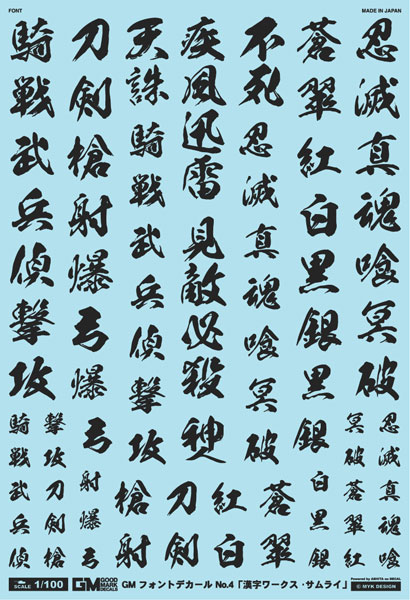 FONT
MADE IN JAPAN
忍滅真魂喰冥破
蒼翠紅白黒銀黒銀
不死
忍滅真魂喰冥破
疾風迅雷
見敵必殺
神
天誅
騎戦武兵偵撃攻
刀剣槍射爆弓爆弓
騎戦武兵偵撃攻
忍滅真魂喰
冥破蒼翠紅
白黒銀
蒼翠
紅白
刀剣
槍射
射爆弓
撃攻刀剣槍
騎戦武兵偵
SCALE 1/100
GM GOOD MARK DECALS
GM フォントデカール No.4「漢字ワークス・サムライ」
© MYK DESIGN